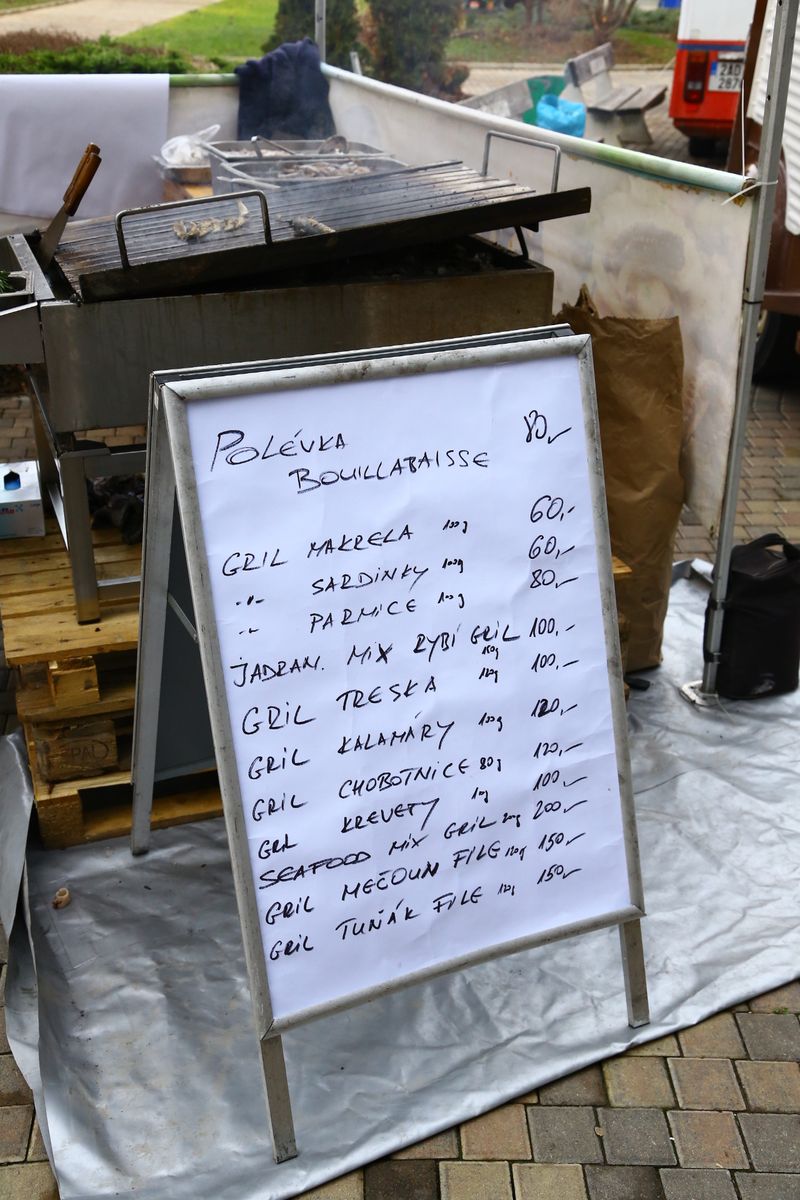 POLÉVKA 80,-
BOUILLABAISSE
GRIL MAKRELA 100g 60,-
-"- SARDINKY 100g 60,-
-"- PARMICE 100g 80,-
JADRAN. MIX RYBÍ GRIL 150g 100,-
GRIL TRESKA 100,-
GRIL KALAMÁRY 100g 120,-
GRIL CHOBOTNICE 80g 120,-
GRIL KREVETY 100,-
SEAFOOD MIX GRIL 200,-
GRIL MEČOUN FILE 120g 150,-
GRIL TUŇÁK FILE 120g 150,-
EPAL
2AD
287